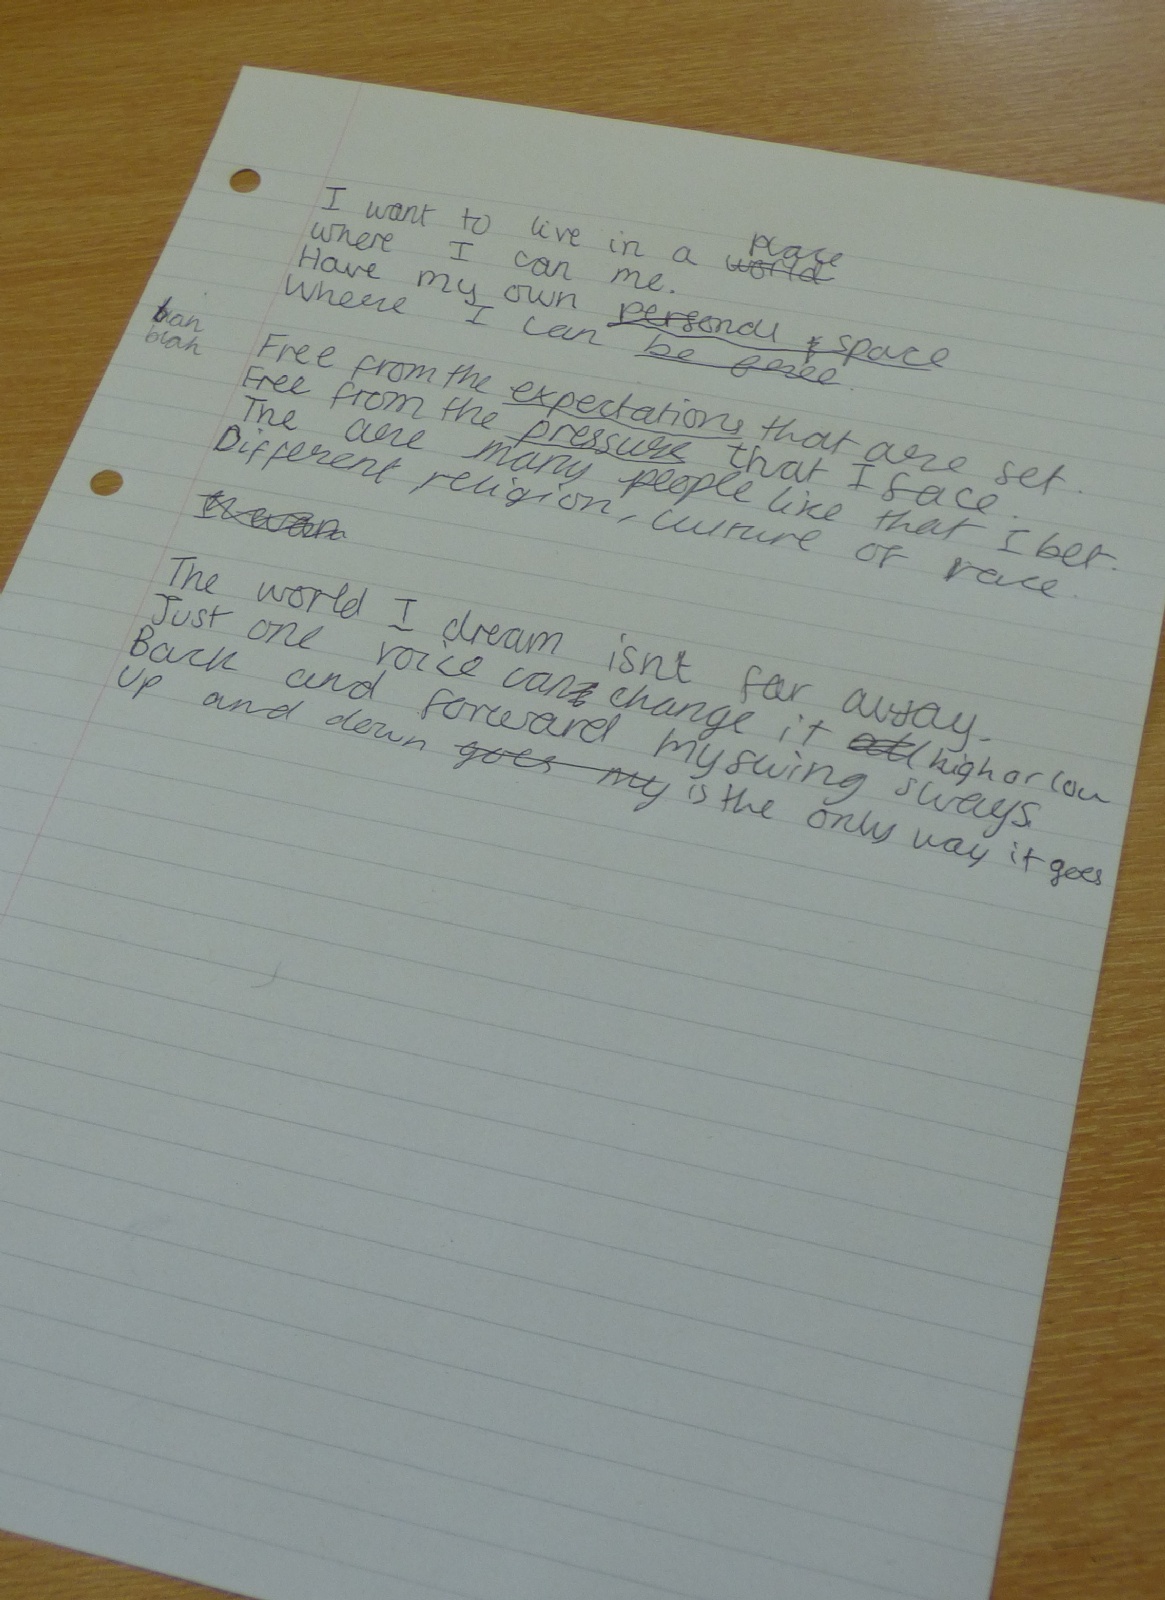 I want to live in a place world
where I can me.
Have my own personal space
Where I can be free.
blah
blah
Free from the expectations that are set.
Free from the pressure that I face.
The are many people like that I bet.
Different religion, culture or race.
The world I dream isnt far away.
Just one voice can change it all high or low
Back and forward my swing sways.
Up and down goes my is the only way it goes